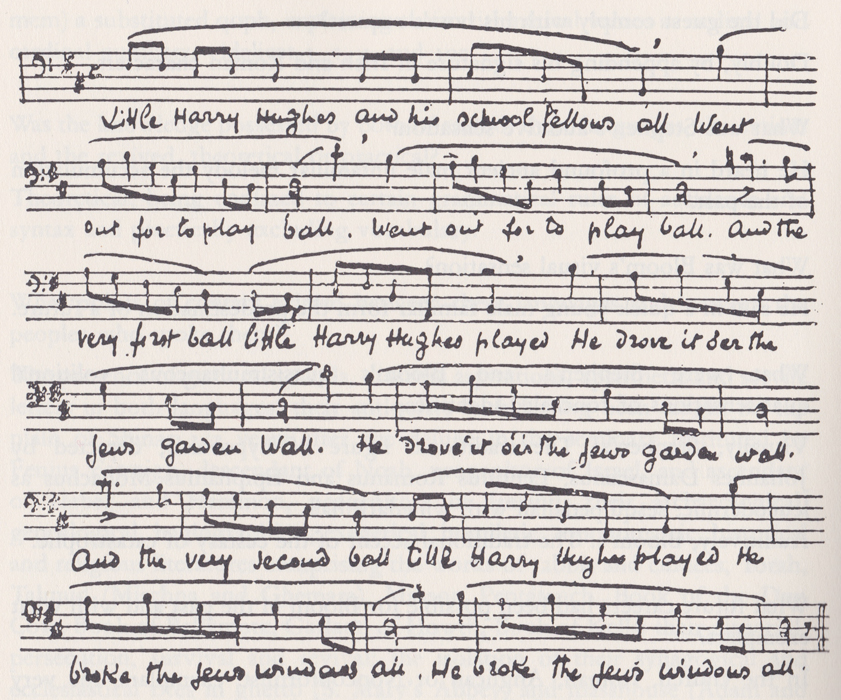 Little Harry Hughes and his school fellows all Went
out for to play ball. Went out for to play ball. And the
very first ball little Harry Hughes played He drove it o'er the
jews garden wall. He drove it o'er the jews garden wall.
And the very second ball little Harry Hughes played He
broke the jews windows all He broke the jews windows all.